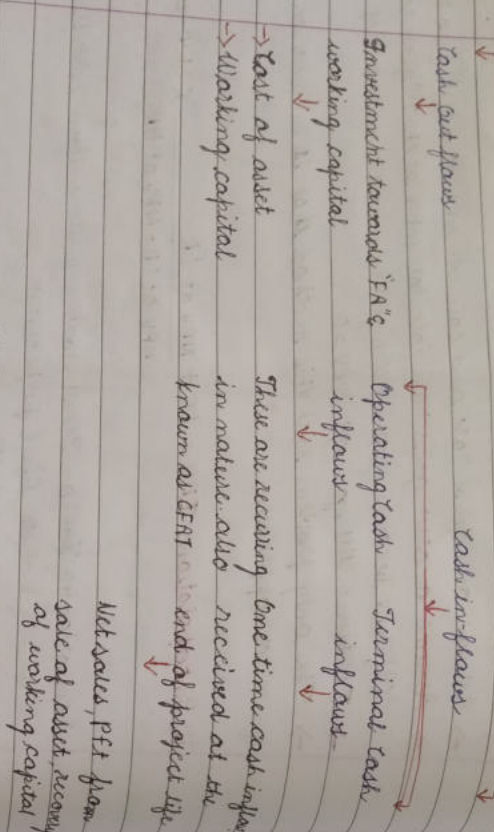 Cash out flows
Cash in-flows
Investment towards "FA" &
working capital
→ Cost of asset
→ Working capital
Operating Cash
inflows
These are recurring
in nature also
known as CFAT
Terminal Cash
inflows
One time cash inflow
received at the
end of project life
Net sales, Pft from
sale of asset, recovery
of working capital